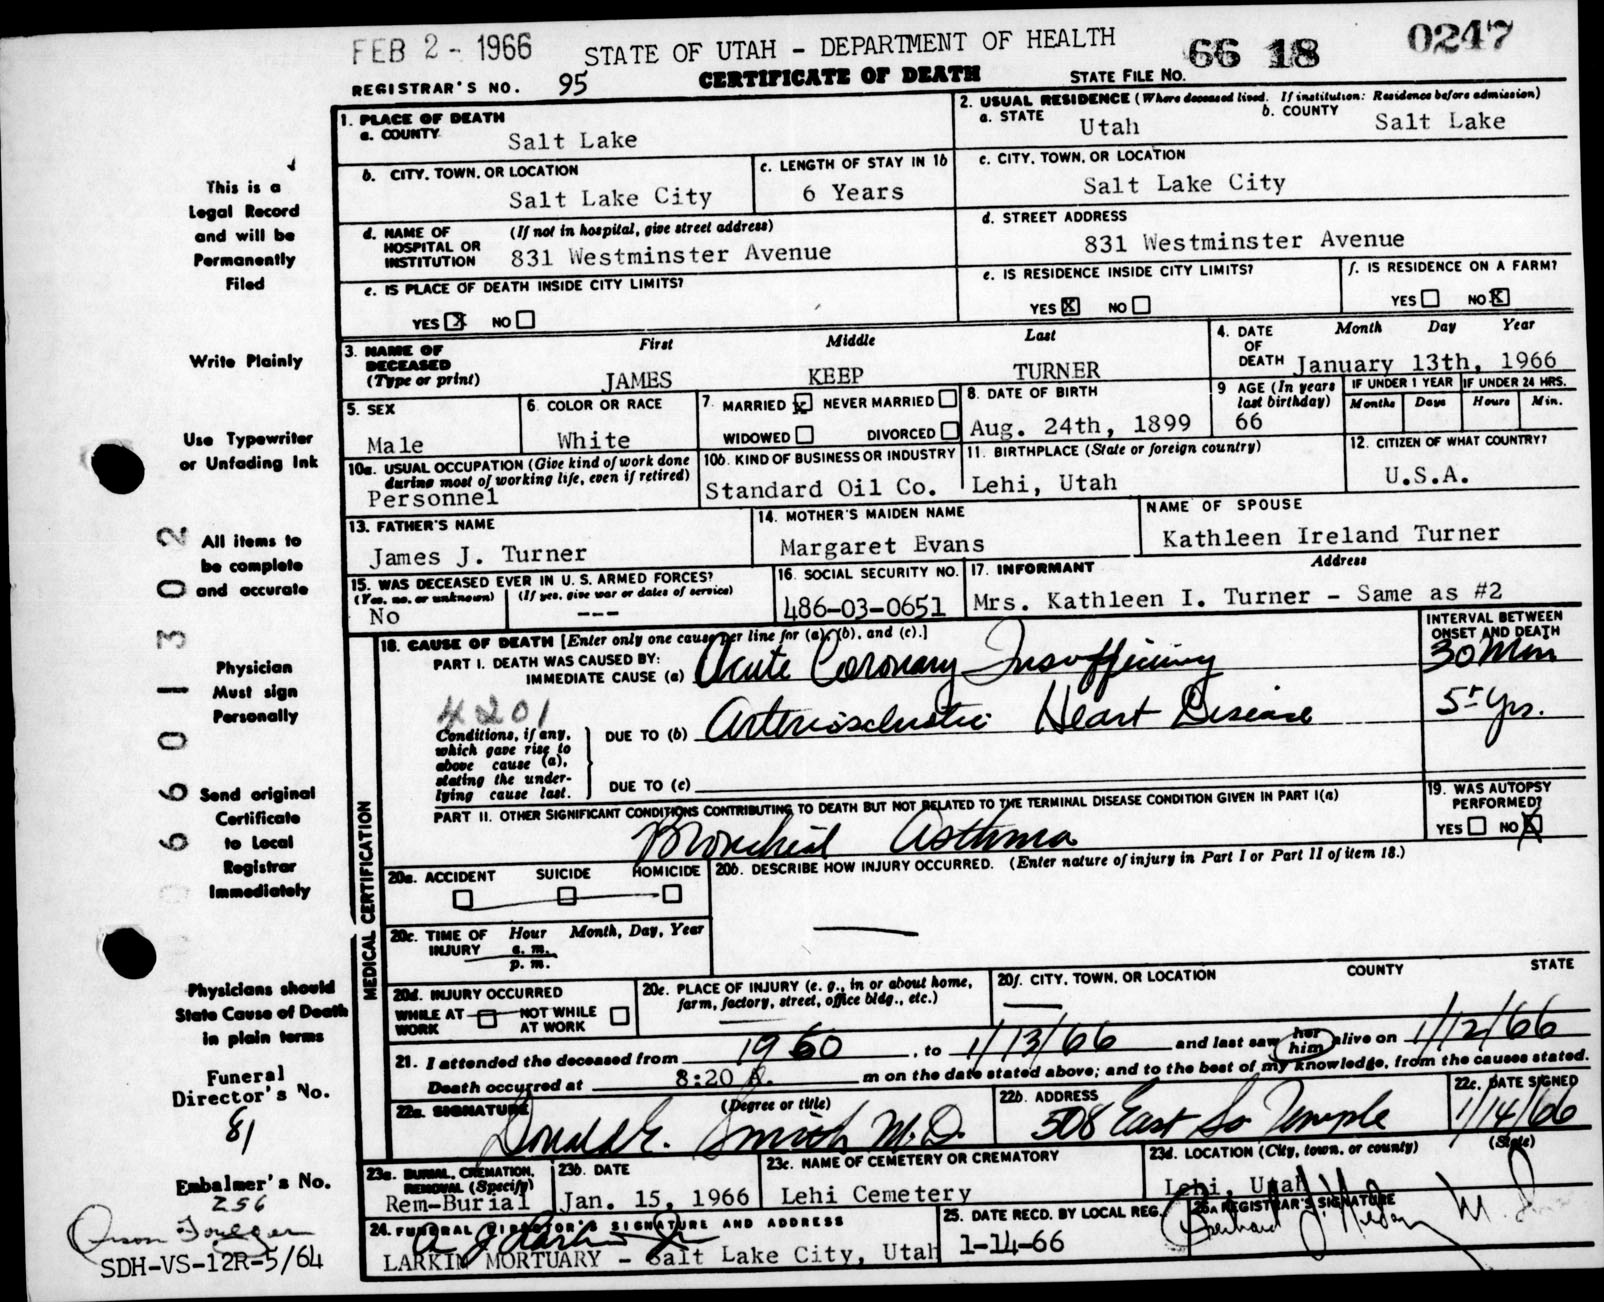 FEB 2 - 1966 STATE OF UTAH - DEPARTMENT OF HEALTH 66 18 0247
REGISTRAR'S NO. 95 CERTIFICATE OF DEATH STATE FILE NO.
1. PLACE OF DEATH
a. COUNTY Salt Lake
2. USUAL RESIDENCE (Where deceased lived. If institution: Residence before admission)
a. STATE Utah b. COUNTY Salt Lake
b. CITY, TOWN, OR LOCATION Salt Lake City
c. LENGTH OF STAY IN 1b 6 Years
c. CITY, TOWN, OR LOCATION
Salt Lake City
d. NAME OF HOSPITAL OR INSTITUTION (If not in hospital, give street address)
831 Westminster Avenue
d. STREET ADDRESS
831 Westminster Avenue
e. IS PLACE OF DEATH INSIDE CITY LIMITS?
YES X NO
e. IS RESIDENCE INSIDE CITY LIMITS?
YES X NO
f. IS RESIDENCE ON A FARM?
YES NO X
3. NAME OF DECEASED (Type or print)
First Middle Last
JAMES KEEP TURNER
4. DATE OF DEATH Month Day Year
January 13th, 1966
5. SEX
Male
6. COLOR OR RACE
White
7. MARRIED X NEVER MARRIED
WIDOWED DIVORCED
8. DATE OF BIRTH
Aug. 24th, 1899
9 AGE (In years last birthday)
66
IF UNDER 1 YEAR IF UNDER 24 HRS.
Months Days Hours Min.
10a. USUAL OCCUPATION (Give kind of work done during most of working life, even if retired)
Personnel
10b. KIND OF BUSINESS OR INDUSTRY
Standard Oil Co.
11. BIRTHPLACE (State or foreign country)
Lehi, Utah
12. CITIZEN OF WHAT COUNTRY?
U.S.A.
13. FATHER'S NAME
James J. Turner
14. MOTHER'S MAIDEN NAME
Margaret Evans
NAME OF SPOUSE
Kathleen Ireland Turner
15. WAS DECEASED EVER IN U.S. ARMED FORCES?
(Yes, no, or unknown) (If yes, give war or dates of service)
No ---
16. SOCIAL SECURITY NO.
486-03-0651
17. INFORMANT Address
Mrs. Kathleen I. Turner - Same as #2
MEDICAL CERTIFICATION
18. CAUSE OF DEATH [Enter only one cause per line for (a), (b), and (c).]
INTERVAL BETWEEN ONSET AND DEATH
PART I. DEATH WAS CAUSED BY:
IMMEDIATE CAUSE (a) Acute Coronary Insufficiency 30 Min
4201
Conditions, if any, which gave rise to above cause (a), stating the underlying cause last.
DUE TO (b) Arteriosclerotic Heart Disease 5 yrs.
DUE TO (c)
PART II. OTHER SIGNIFICANT CONDITIONS CONTRIBUTING TO DEATH BUT NOT RELATED TO THE TERMINAL DISEASE CONDITION GIVEN IN PART I(a)
Bronchial Asthma
19. WAS AUTOPSY PERFORMED?
YES NO X
20a. ACCIDENT SUICIDE HOMICIDE
20b. DESCRIBE HOW INJURY OCCURRED. (Enter nature of injury in Part I or Part II of item 18.)
20c. TIME OF INJURY Hour Month, Day, Year
a. m.
p. m.
20d. INJURY OCCURRED
WHILE AT WORK NOT WHILE AT WORK
20e. PLACE OF INJURY (e. g., in or about home, farm, factory, street, office bldg., etc.)
20f. CITY, TOWN, OR LOCATION COUNTY STATE
21. I attended the deceased from 1960, to 1/13/66 and last saw her him alive on 1/12/66
Death occurred at 8:20 A. m on the date stated above; and to the best of my knowledge, from the causes stated.
22a. SIGNATURE (Degree or title)
Donald E. Smith M.D.
22b. ADDRESS
508 East So Temple
22c. DATE SIGNED
1/14/66
23a. BURIAL, CREMATION, REMOVAL (Specify)
Rem-Burial
23b. DATE
Jan. 15, 1966
23c. NAME OF CEMETERY OR CREMATORY
Lehi Cemetery
23d. LOCATION (City, town, or county) (State)
Lehi, Utah
24. FUNERAL DIRECTOR'S SIGNATURE AND ADDRESS
LARKIN MORTUARY - Salt Lake City, Utah
25. DATE RECD. BY LOCAL REG.
1-14-66
26A REGISTRAR'S SIGNATURE
This is a
Legal Record
and will be
Permanently
Filed
Write Plainly
Use Typewriter
or Unfading Ink
All items to
be complete
and accurate
Physician
Must sign
Personally
Send original
Certificate
to Local
Registrar
Immediately
Physicians should
State Cause of Death
in plain terms
Funeral
Director's No.
81
Embalmer's No.
256
SDH-VS-12R-5/64